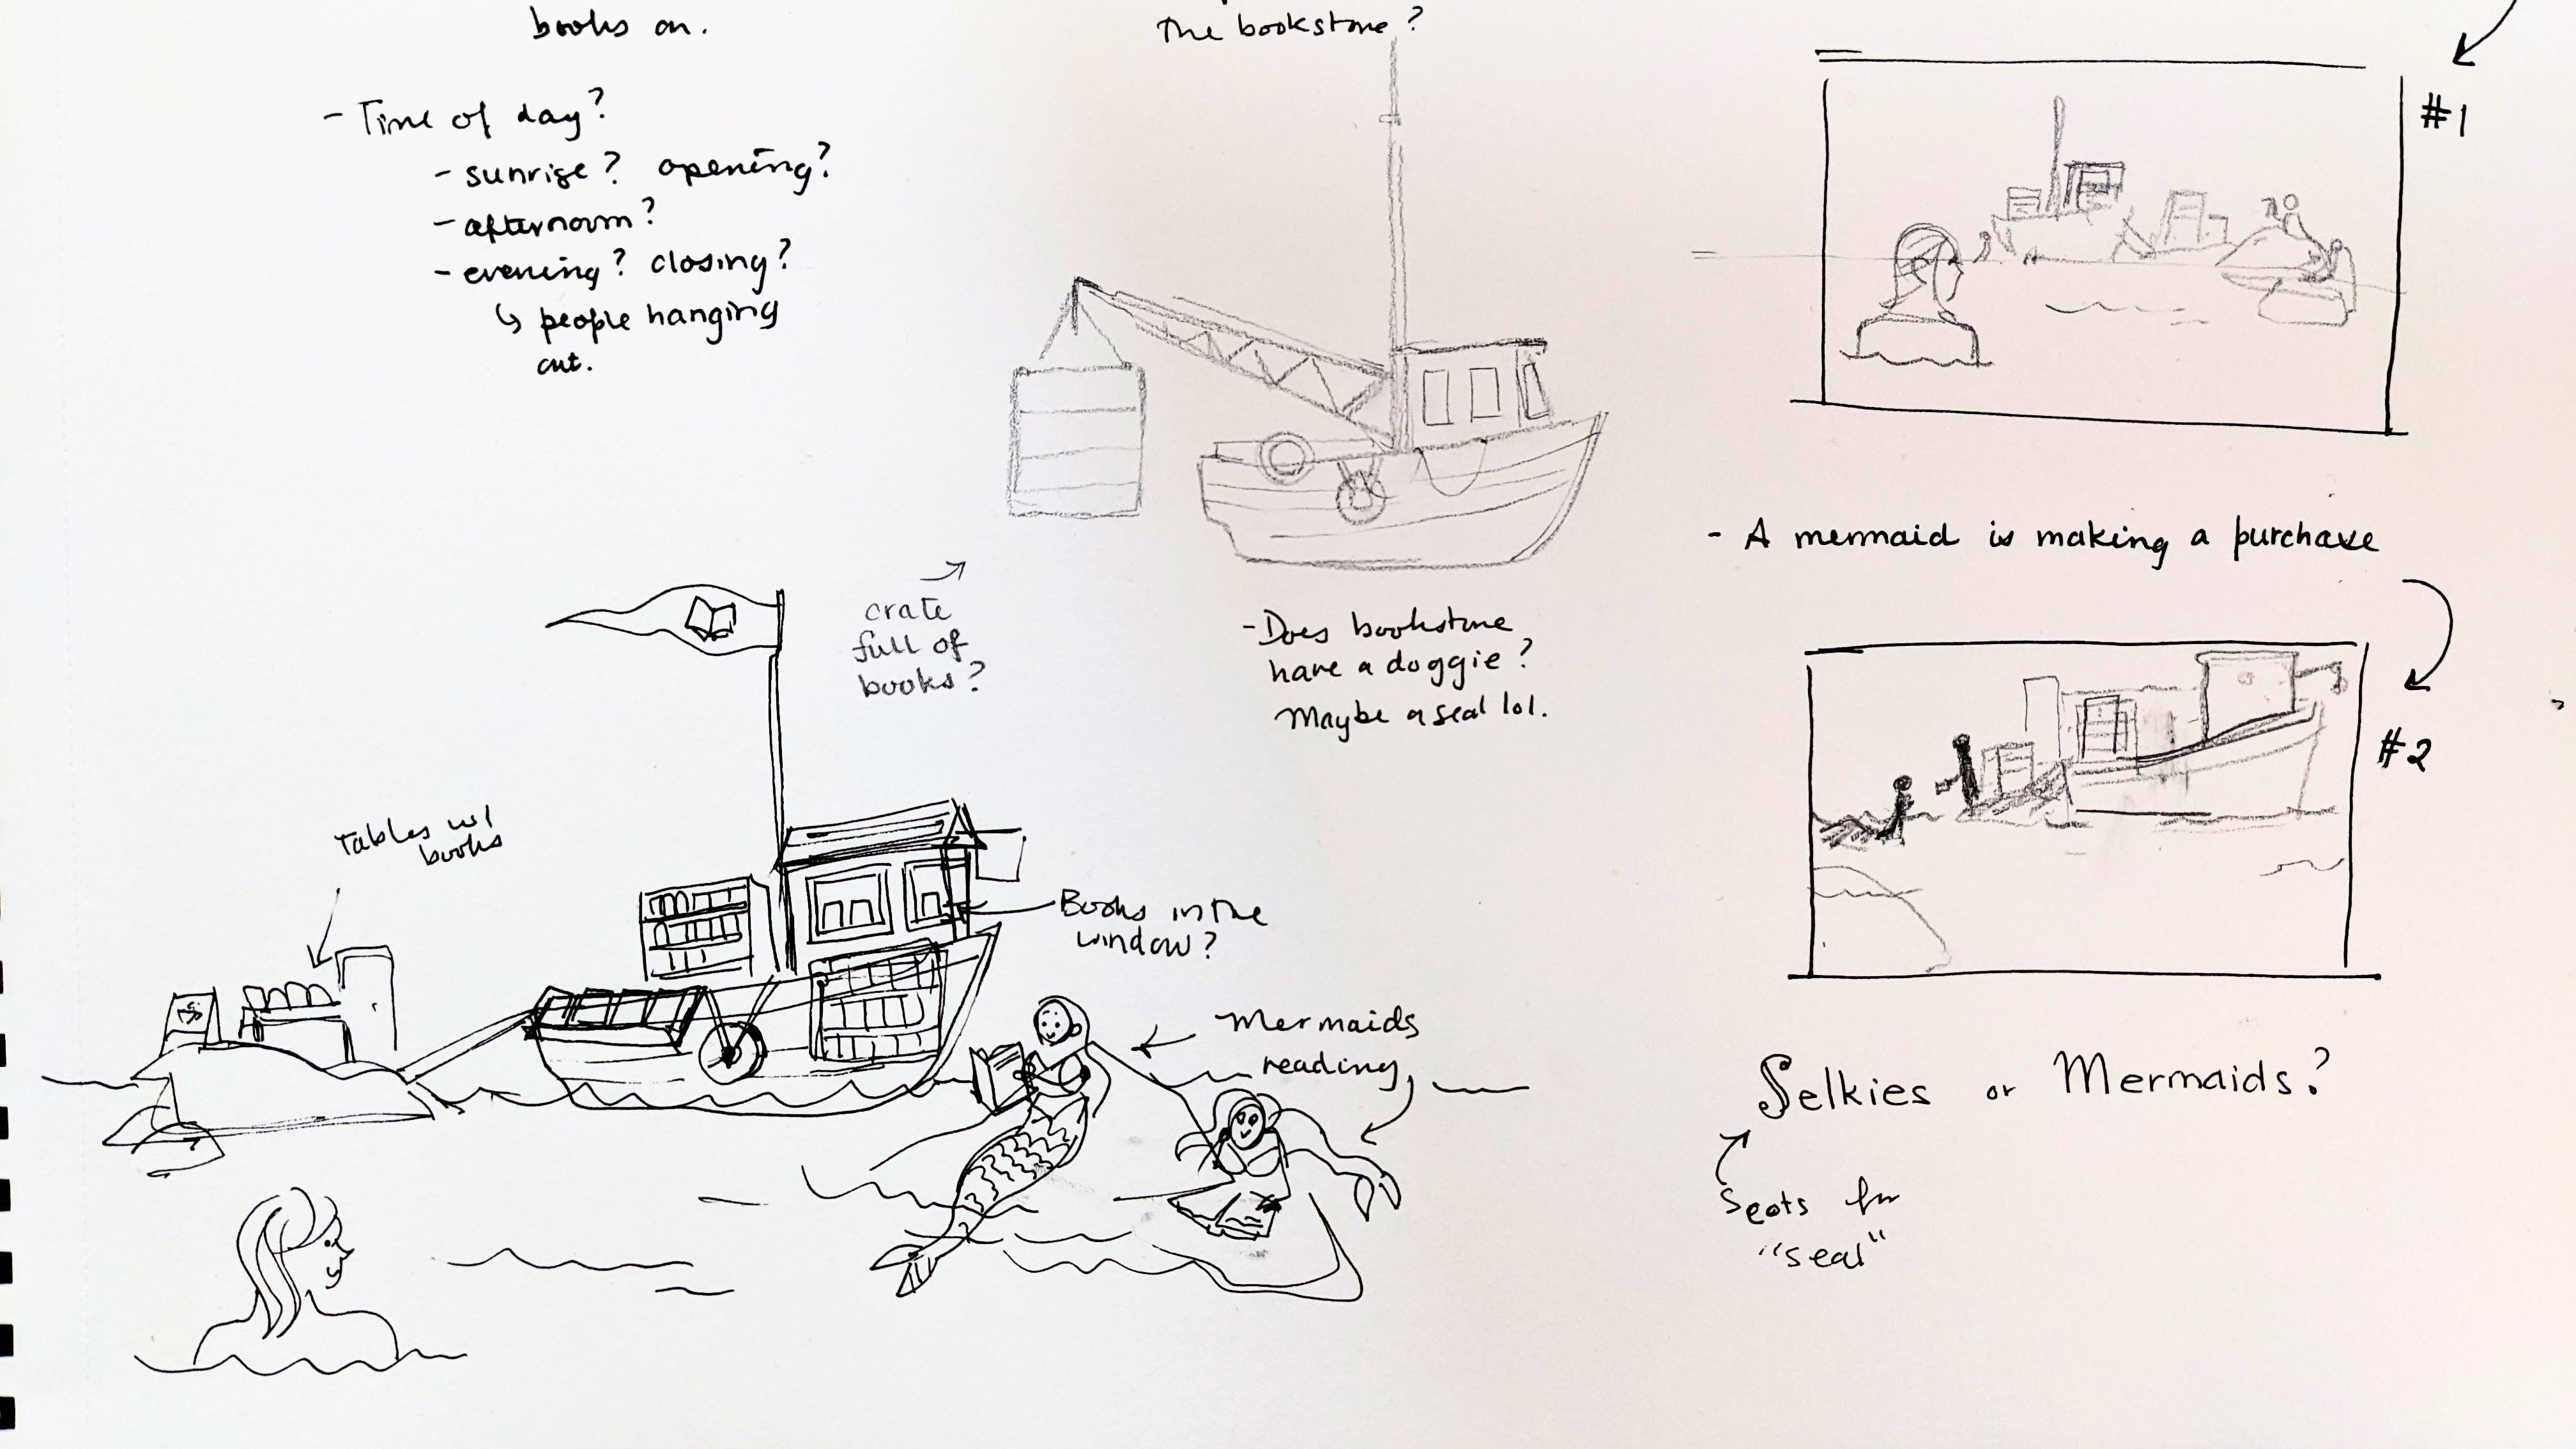 books on.
- Time of day?
- sunrise? opening?
- afternoon?
- evening? closing?
↳ people hanging
out.
The bookstore?
crate
full of
books?
- Does bookstore
have a doggie?
Maybe a seal lol.
Tables w/
books
Books in the
window?
Mermaids
reading
#1
- A mermaid is making a purchase
#2
Selkies or Mermaids?
Scots for
"seal"